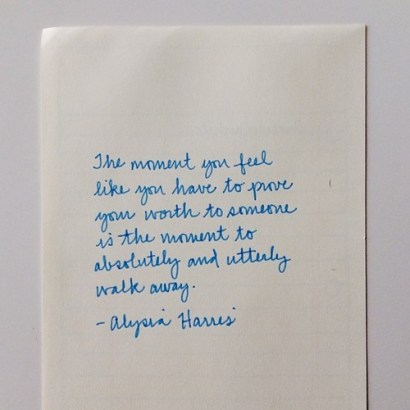 The moment you feel
like you have to prove
your worth to someone
is the moment to
absolutely and utterly
walk away.
- Alysia Harris